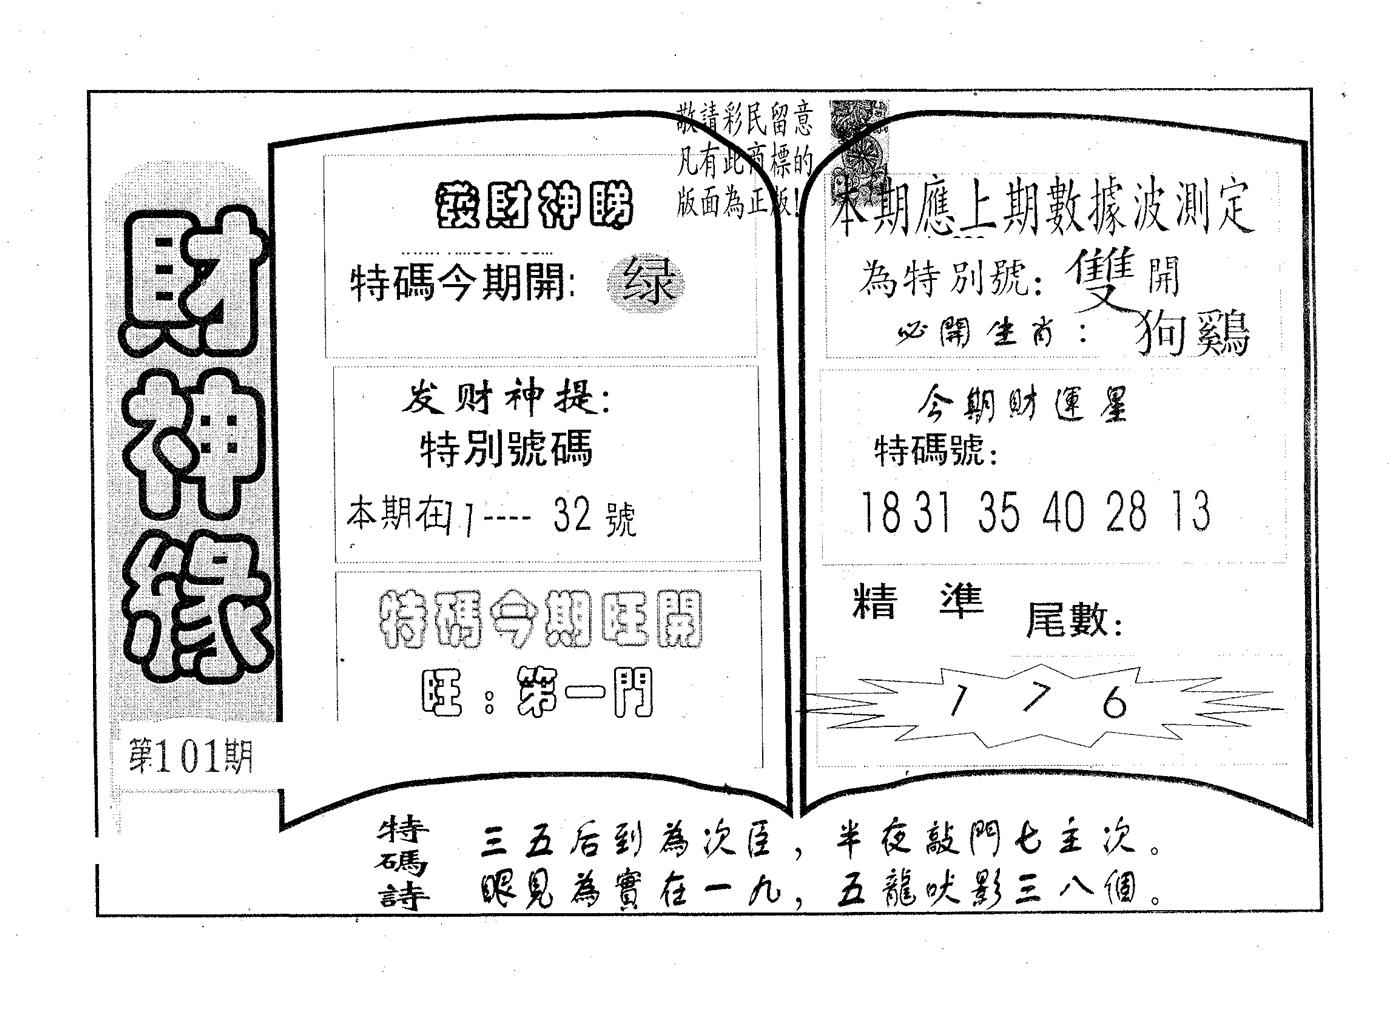 財神緣
第101期
敬請彩民留意
凡有此商標的
版面為正版!
發財神睇
特碼今期開:绿
发财神提:
特別號碼
本期在11---- 32號
特碼今期旺開
旺:第一門
本期應上期數據波測定
為特別號:雙開
必開生肖:狗鷄
今期財運星
特碼號:
18 31 35 40 28 13
精準尾數:
1 7 6
特碼詩
三五后到為次臣,半夜敲門七主次。
眼見為實在一九,五龍吠影三八個。